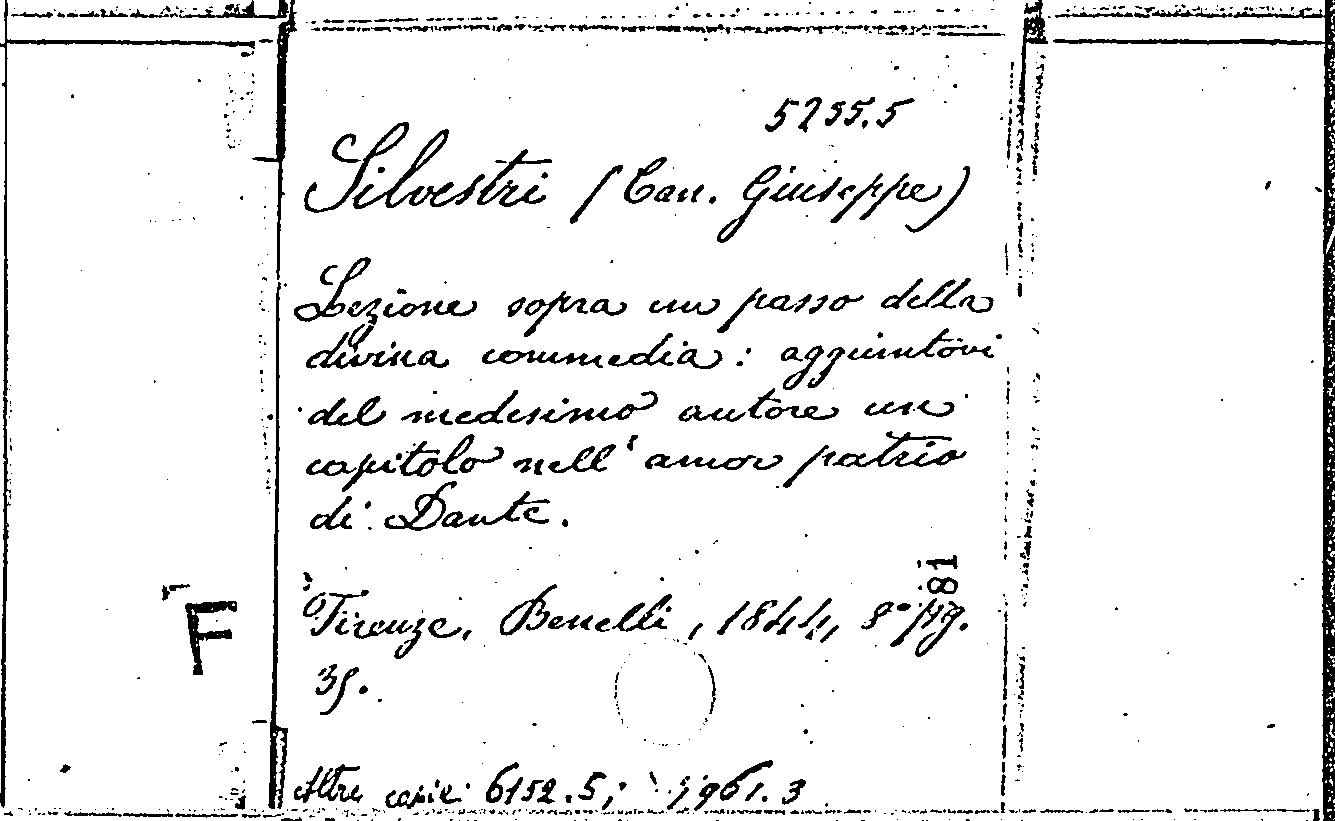 5255.5
Silvestri (Can. Giuseppe)
Lezione sopra un passo della
divina commedia: aggiuntovi
del medesimo autore un
capitolo nell' amor patrio
di Dante.
81
Firenze, Benelli, 1844, 8° pag.
35.
F
Altre copie: 6152.5; 961.3